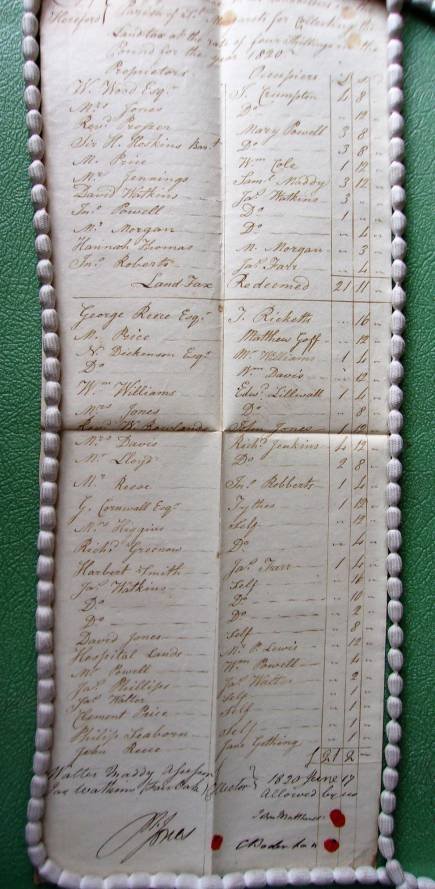 Hereford Parish of St. Margarets for Collecting the
Land tax at the rate of four shillings in the
Pound for the year 1820
Proprietors Occupiers £ s
W. Wood Esqr. J. Crumpton 4 8
Mrs Jones Do 12
Revd Prosser Mary Powell 3 8
Sir H. Hoskins Bart Do 3 8
M. Price Wm Cole 1 12
Mr Jennings Saml Maddy 3 12
David Watkins Jas Watkins 3
Jno Powell Do 1
Mr Morgan Do 4
Hannah Thomas M. Morgan 3
Jno Roberts Jas Farr 4
Land Tax Redeemed 21 11
George Reece Esqr T. Ricketts 16
M. Price Matthew Goff 12
N. Dickenson Esqr Mr Williams 1 4
Do Wm Davis 12
Wm Williams Edwd Lillwall 1 4
Mrs Jones Do 8
Rowlands John Jones 1 12
Mrs Davis Richd Jenkins 4 12
Mr Lloyd Do 2 8
Mr Reese Jno Robberts 1 4
G. Cornwall Esqr Tythes 1 12
Mrs Higgins Self 12
Richd Greenow Do 4
Harbert Smith Jas Farr 1 4
Jas Watkins Self 16
Do Do 10
Do Do 2
David Jones Self 8
Hospital Lands Mr P. Lewis 12
Mr Powell Wm Powell 4
Jas Phillips Jas Walter 2
Jas Walter Self 1
Clement Price Self 1
Philip Seaborn Self 1
John Reece Jane Gething 1
£ 21 2
Walter Maddy Assessor 1820 June 17
Jas Watkins (Fair Oak) Collector Allowed by us
John Matthews
Jones